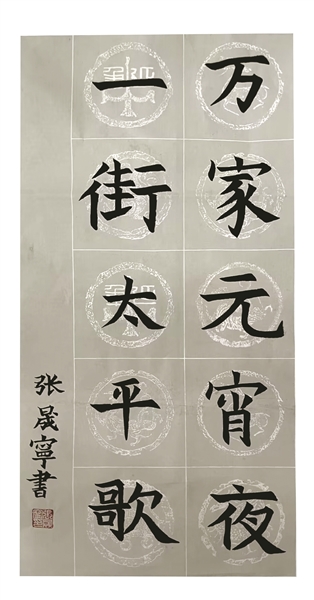 万家元宵夜
一街太平歌
张晟宁书